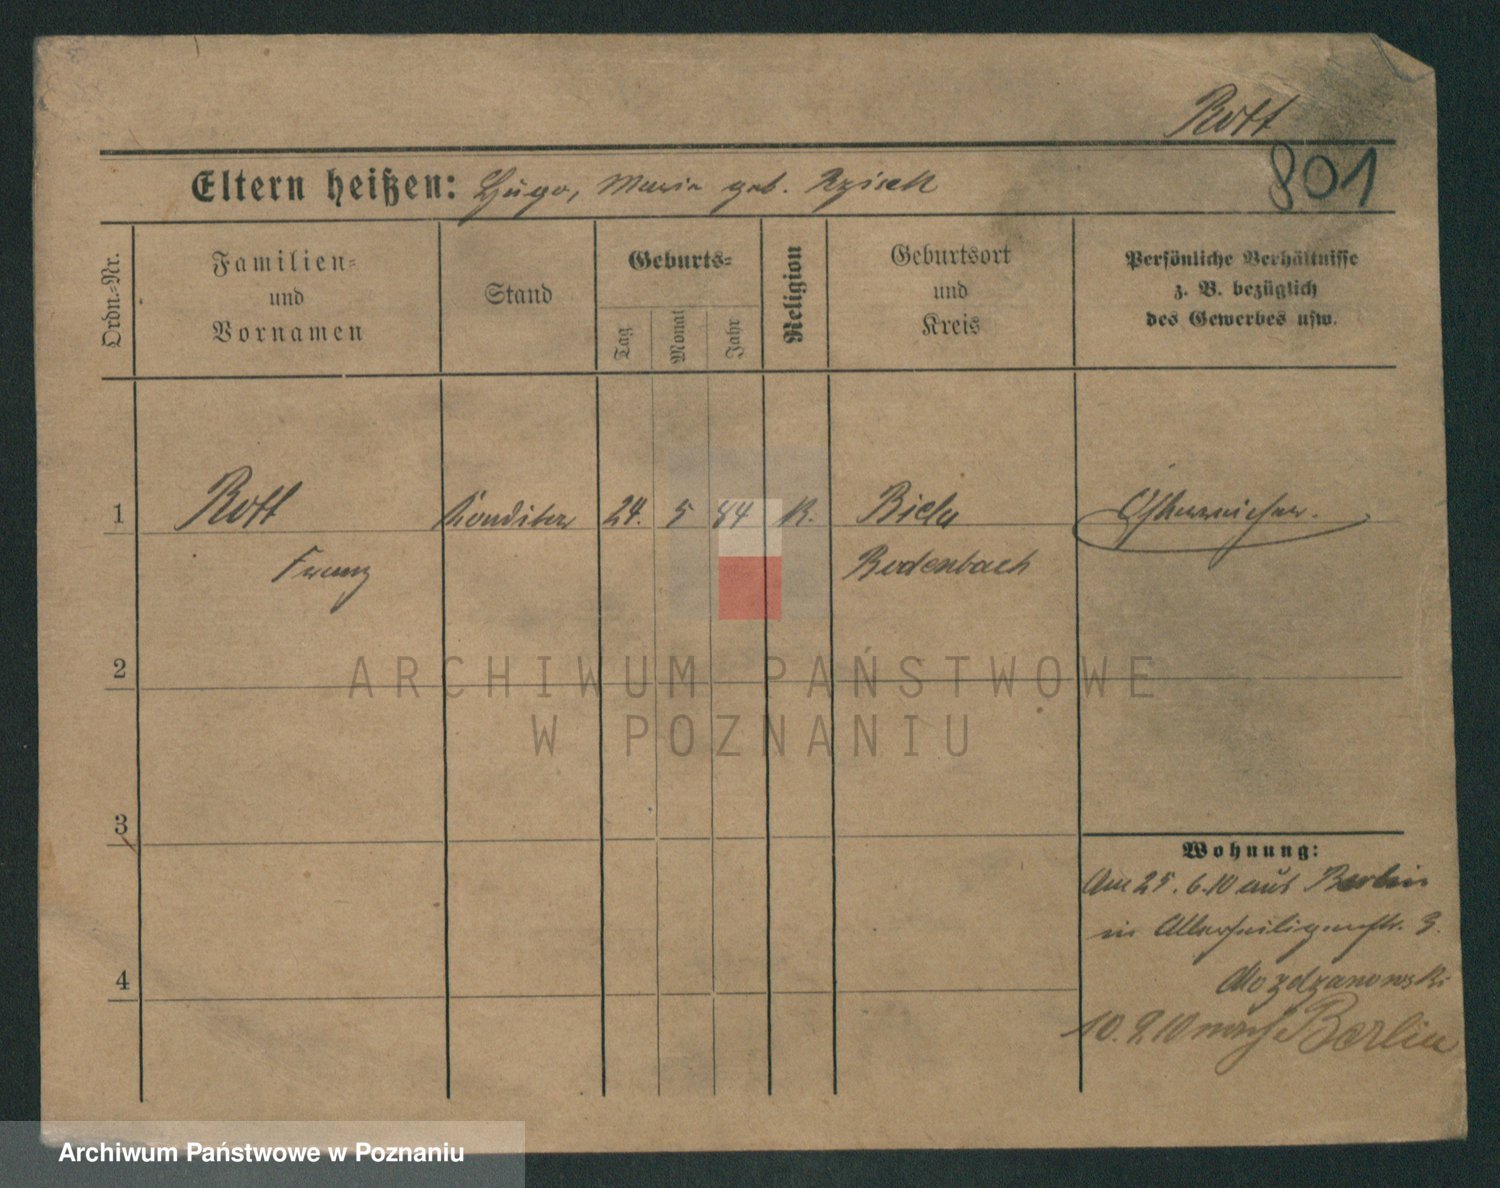 Rott
801
Eltern heißen: Hugo, Marie geb.
Ordn.-Nr.
Familien-
und
Vornamen
Stand
Geburts-
Tag
Monat
Jahr
Religion
Geburtsort
und
Kreis
Persönliche Verhältnisse
z. B. bezüglich
des Gewerbes usw.
1 Rott Konditor 24. 5 84 K. Biela Österreicher.
Franz Bodenbach
2
ARCHIWUM PAŃSTWOWE
W POZNANIU
3
4
Wohnung:
Am 25.6.10 aus Berlin
in Allerheiligenstr. 3.
Mozdzanowski
10.9.10 nach Berlin
Archiwum Państwowe w Poznaniu